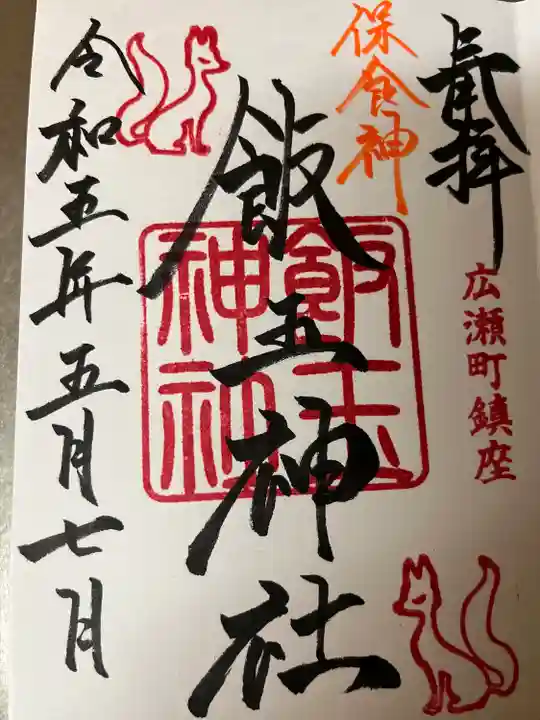 奉拝
広瀬町鎮座
保食神
飯玉神社
飯玉
神社
令和五年五月七日